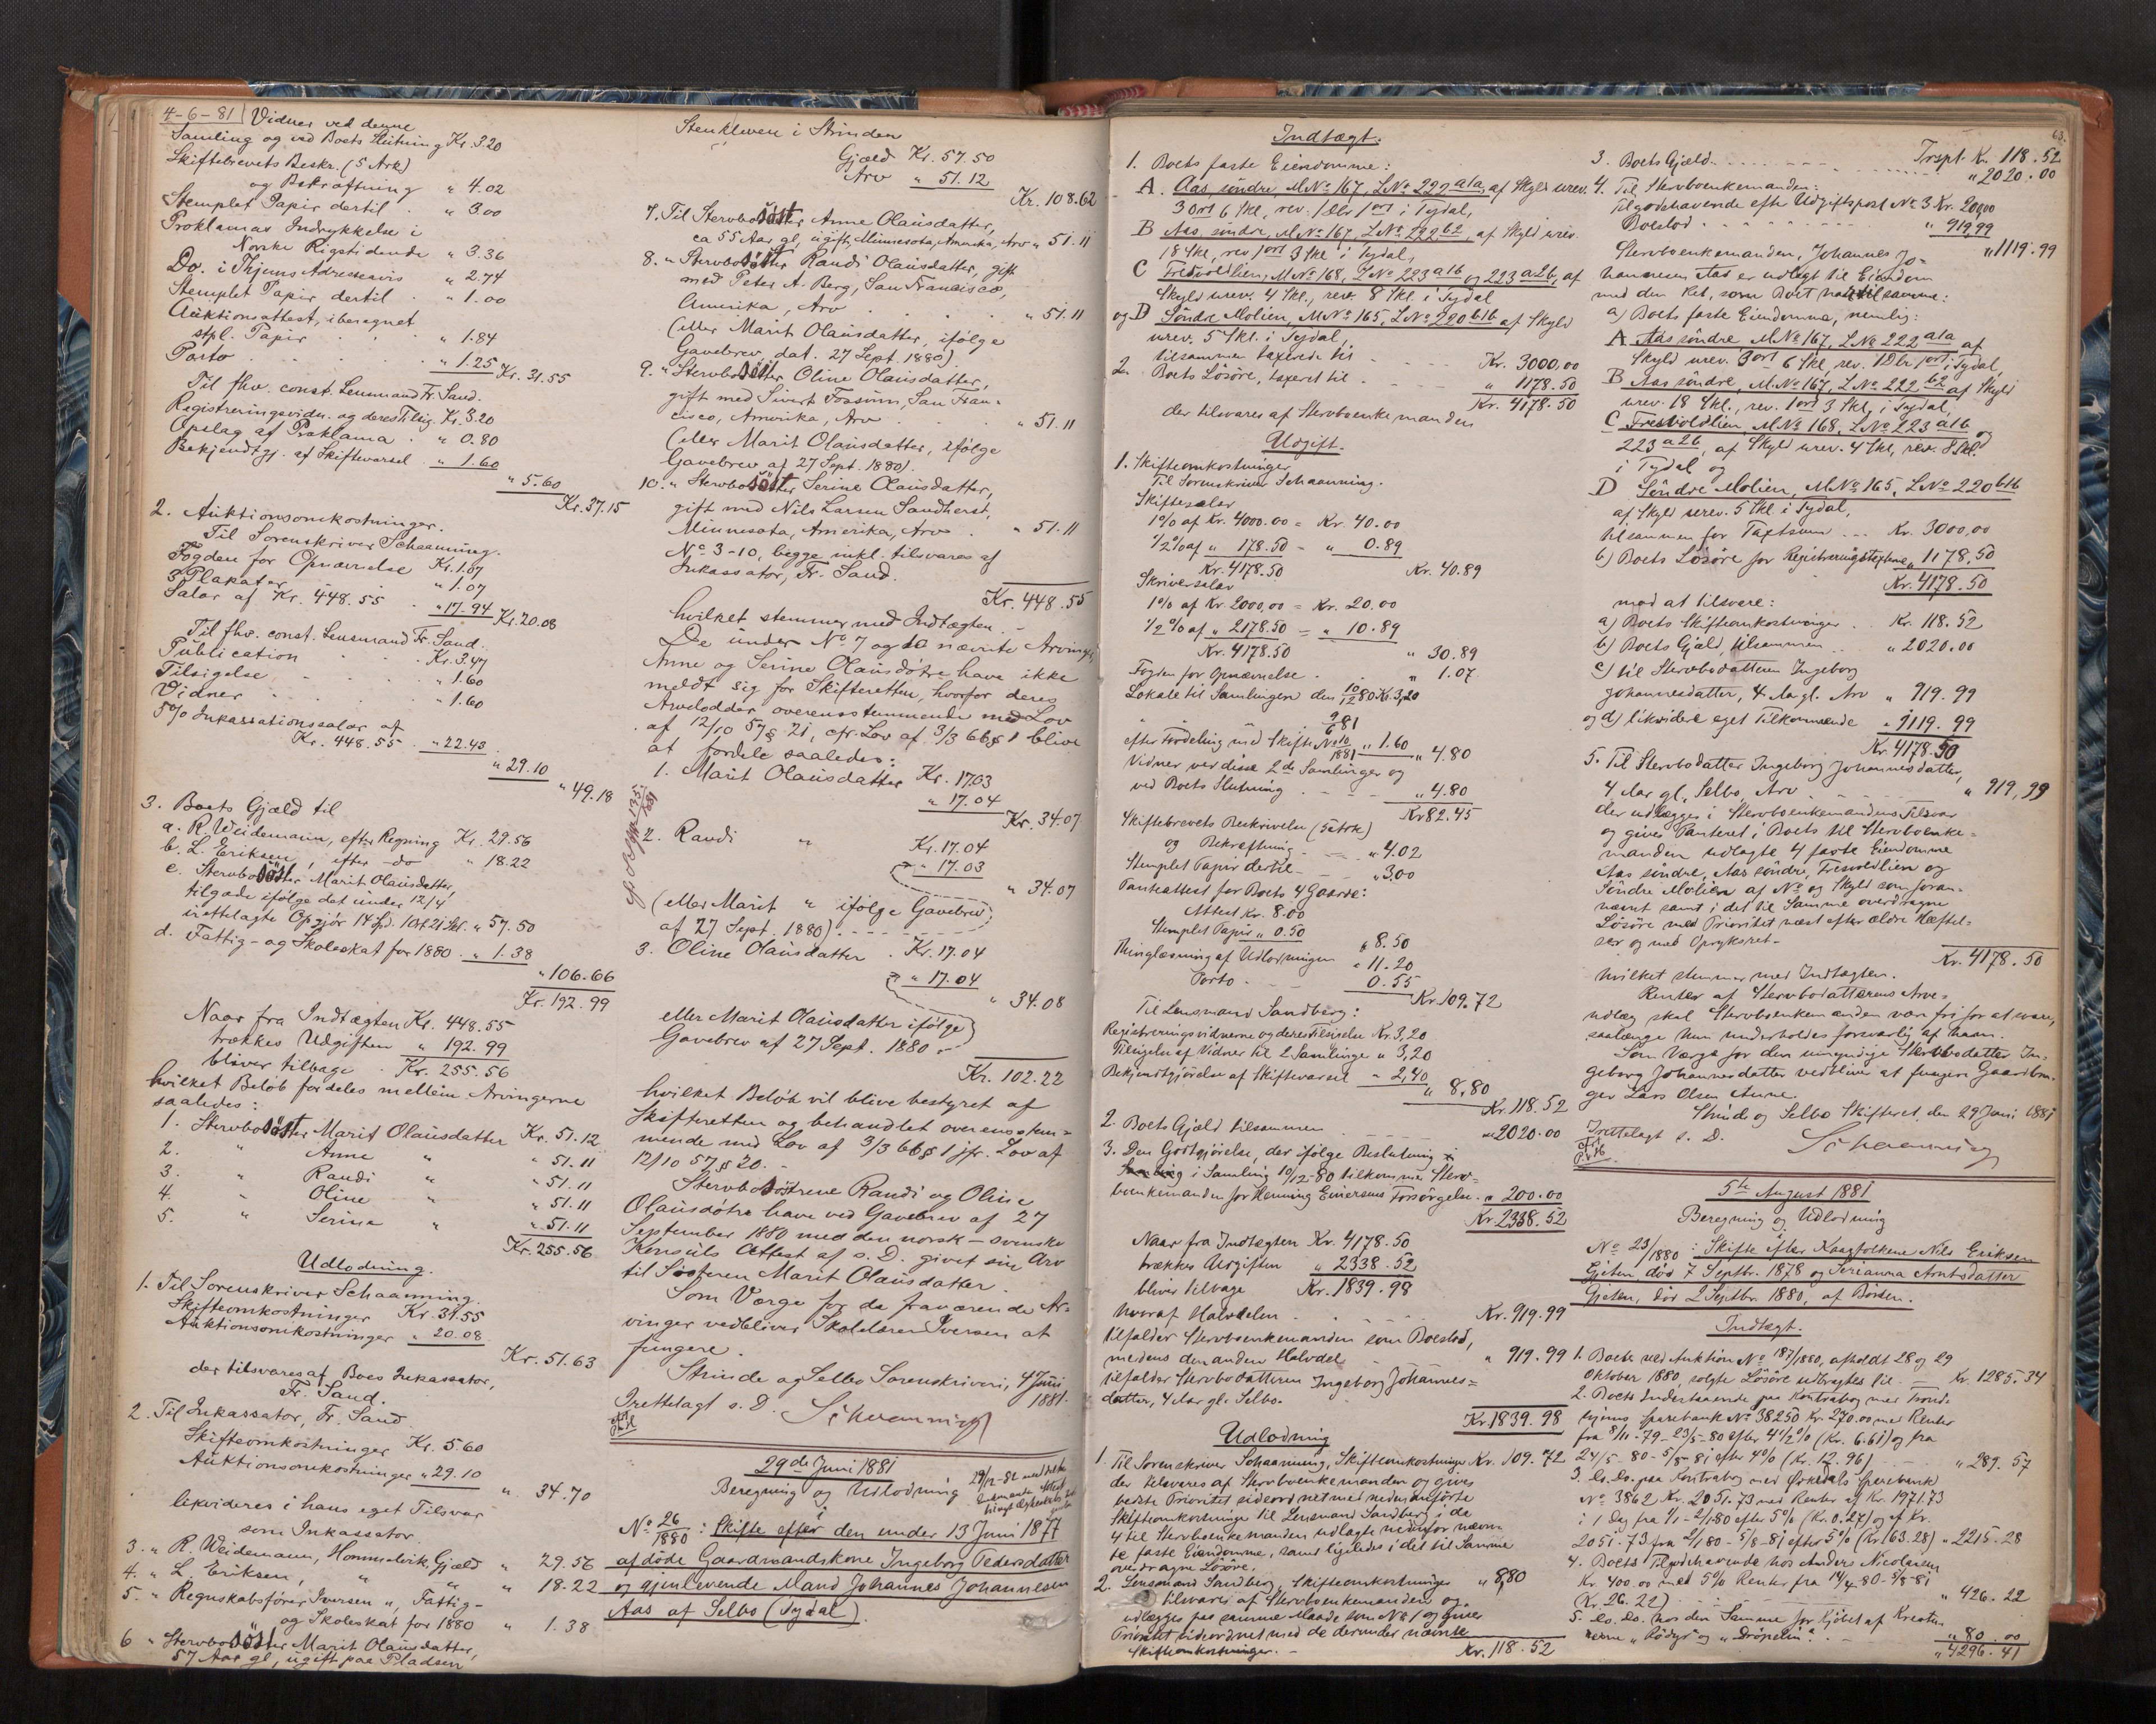 4-6-81 Vidner ved denne
Samling og ved Boets Slutning Kr. 3.20
Skiftebrevets Beskr. (5 Ark)
og Bekræftning " 4.02
Stemplet Papir dertil . " 3.00
Proklamas Indrykkelse i
Norske Rigstidende " 3.36
Do. i Thjems Adresseavis " 2.74
Stemplet Papir dertil . " 1.00
Auktionsattest, iberegnet
stpl. Papir . . " 1.84
Porto . . . . " 1.25 Kr. 31.55
Til fhv. const. Lensmand Fr. Sand.
Registreringsvidn. og deres Tilsig. Kr. 3.20
Opslag af Proklama . " 0.80
Bekjendtgj. af Skiftevarsel . " 1.60
" 5.60
Kr. 37.15
2. Auktionsomkostninger.
Til Sorenskriver Schaanning.
Fogden for Opnævnelse Kr. 1.07
3 Plakater " 1.07
Salær af Kr. 448.55 . " 17.94 Kr. 20.08
Til fhv. const. Lensmand Fr. Sand.
Publication . . Kr. 3.47
Tilsigelse . . " 1.60
Vidner . . . " 1.60
5% Inkassationssalær af
Kr. 448.55 . " 22.43
" 29.10
" 49.18
3. Boets Gjæld til
a. R. Weidemann, efter Regning Kr. 29.56
b. L. Eriksen, efter do " 18.22
c. Stervbosøster Marit Olausdatter,
tilgode ifølge det under 12/4
irettelagte Opgjør 14 Spd. 1 Ort 21 Sk. " 57.50
d. Fattig- og Skoleskat for 1880 . " 1.38
" 106.66
Kr. 192.99
Naar fra Indtægten Kr. 448.55
trækkes Udgiften " 192.99
bliver tilbage . Kr. 255.56
hvilket Beløb fordeles mellem Arvingerne
saaledes:
1. Stervbosøster Marit Olausdatter Kr. 51.12
2. " Anne " " 51.11
3. " Randi " " 51.11
4. " Oline " " 51.11
5. " Serine " " 51.11
Kr. 255.56
Udlodning.
1. Til Sorenskriver Schaanning.
Skifteomkostninger Kr. 31.55
Auktionsomkostninger " 20.08
Kr. 51.63
der tilsvares af Boets Inkassator,
Fr. Sand.
2. Til Inkassator, Fr. Sand.
Skifteomkostninger Kr. 5.60
Auktionsomkostninger " 29.10
" 34.70
likvideres i hans eget Tilsvar
som Inkassator
3. " R. Weidemann, Hommelvik, Gjæld " 29.56
4. " L. Eriksen, " " " 18.22
5. " Regnskabsfører Iversen ", Fattig-
og Skoleskat for 1880 " 1.38
6 " Stervbosøster Marit Olausdatter,
57 Aar gl, ugift paa Pladsen
Stenkleven i Strinden
Gjæld Kr. 57.50
Arv " 51.12
Kr. 108.62
7. Til Stervbosøster Anne Olausdatter,
ca 55 Aar gl, ugift, Minnesota, Amerika, Arv " 51.11
8. " Stervbosøster Randi Olausdatter, gift
med Peter A. Berg, San Francisco,
Amerika, Arv . . . . " 51.11
(eller Marit Olausdatter, ifølge
Gavebrev, dat. 27 Sept. 1880).
9. " Stervbosøster Oline Olausdatter,
gift med Sivert Fossum, San Fran-
cisco, Amerika, Arv . . . " 51.11
(eller Marit Olausdatter, ifølge
Gavebrev af 27 Sept. 1880).
10. " Stervbosøster Serine Olausdatter,
gift med Nils Larsen Sandherst,
Minnesota, Amerika, Arv . " 51.11
No 3-10, begge inkl. tilsvares af
Inkassator, Fr. Sand.
Kr. 448.55
hvilket stemmer med Indtægten. -
De under No 7 og 10 nævnte Arvinge,
Anne og Serine Olausdøtre have ikke
meldt sig for Skifteretten, hvorfor deres
Arvelodder overensstemmende med Lov
af 12/10 57 § 21, cfr. Lov af 3/3 66 § 1 blive
at fordele saaledes:
1. Marit Olausdatter Kr. 17.03
" 17.04
Kr. 34.07
2. Randi " Kr. 17.04
" 17.03
" 34.07
(eller Marit " ifølge Gavebrev
af 27 Sept. 1880).
3. Oline Olausdatter . Kr. 17.04
" 17.04
" 34.08
eller Marit Olausdatter ifølge
Gavebrev af 27 Sept. 1880.
Kr. 102.22
hvilket Beløb vil blive bestyret af
Skifteretten og behandlet overensstem-
mende med Lov af 3/3 66 § 1 jfr. Lov af
12/10 57 § 20. -
Stervbosøstrene Randi og Oline
Olausdøtre have ved Gavebrev af 27
September 1880 med den norsk-svenske
Konsuls Attest af s. D. givet sin Arv
til Søsteren Marit Olausdatter.
Som Værge for de fraværende Ar-
vinger vedbliver Skolelærer Iversen at
fungere.
Strinde og Selbo Sorenskriveri, 4 Juni
1881.
Irettelagt s. D. Schaanning
29de Juni 1881
Beregning og Udlodning
i
No 26/1880: Skifte efter den under 13 Juni 1877
afdøde Gaardmandskone Ingeborg Pedersdatter
og gjenlevende Mand Johannes Johannesen
Aas af Selbo (Tydal).
63.
Indtægt.
1. Boets faste Eiendomme:
A. Aas søndre, M.No 167, L.No 222 a1a, af Skyld urev.
3 Ort 6 Skl, rev. 1 Dlr 1 Ort i Tydal,
B Aas søndre, M.No 167, L.No 222 b2, af Skyld urev.
18 Skl, rev 1 Ort 3 Skl i Tydal,
C Fresvoldlien, M.No 168, L.No 223 a1b og 223 a2b, af
Skyld urev. 4 Skl., rev. 8 Skl. i Tydal
og D Søndre Molien, M.No 165, L.No 220 b1b af Skyld
urev. 5 Skl. i Tydal,
tilsammen taxerede til . . Kr. 3000,00
2. Boets Løsøre, taxeret til . . " 1178.50
Kr. 4178.50
der tilsvares af Stervboenkemanden
Udgift.
1. Skifteomkostninger
Til Sorenskriver Schaanning.
Skiftesalær
1% af Kr. 4000.00 = Kr. 40.00
1/2% af " 178.50 = " 0.89
Kr. 4178.50 Kr. 40.89
Skriversalær
1% af Kr. 2000,00 = Kr. 20.00
1/2% af " 2178.50 = " 10.89
Kr. 4178.50 " 30.89
Fogden for Opnævnelse . " 1.07
Lokale til Samlingen den 10/12 80 Kr. 3,20
" 9/6 81
efter Fordeling med Skifte No 10/1881 " 1.60 " 4.80
Vidner ved disse 2de Samlinger og
ved Boets Slutning . . " 4.80
Kr 82.45
Skiftebrevets Beskrivelse (5 Ark)
og Bekræftning . . " 4.02
Stemplet Papir dertil . . " 3,00
Panteattest for Boets 4 Gaarde:
Attest Kr. 8.00
Stemplet Papir " 0.50
" 8.50
Thinglæsning af Udlodningen " 11.20
Porto . . 0.55
Kr. 109.72
Til Lensmand Sandberg:
Registreringsvidnerne og deres Tilsigelse Kr. 3,20
Tilsigelse af Vidner til 2 Samlinge " 3,20
Bekjendtgjørelse af Skiftevarsel " 2,40
" 8,80
Kr. 118.52
2. Boets Gjæld tilsammen . . " 2020.00
3. Den Godtgjørelse, der ifølge Beslutning
i Samling 10/12-80 tilkommer Sterv-
boenkemanden for Henning Einersens Forsørgelse . " 200.00
Kr. 2338.52
Naar fra Indtægten Kr. 4178.50
trækkes Udgiften " 2338.52
bliver tilbage Kr. 1839.98
hvoraf Halvdelen . . . Kr. 919.99
tilfalder Stervboenkemanden som Boeslod,
medens den anden Halvdel . . " 919.99
tilfalder Stervbodatteren Ingeborg Johannes-
datter, 4 Aar gl. Selbo.
Kr. 1839.98
Udlodning
1. Til Sorenskriver Schaanning, Skifteomkostninger Kr. 109.72
der tilsvares af Stervboenkemanden og gives
bedste Prioritet sideordnet med nedenanførte
Skifteomkostninger til Lensmand Sandberg i de
4 til Stervboenkemanden udlagte nedenfor nævn-
te faste Eiendomme, samt ligeledes i det til Samme
overdragne Løsøre.
2. Lensmand Sandberg, Skifteomkostninger " 8,80
tilsvares af Stervboenkemanden og
udlægges paa samme Maade som No 1 og gives
Prioritet sideordnet med de derunder nævnte
Skifteomkostninger. - Kr. 118.52
Trspt. Kr. 118.52
3. Boets Gjæld . . . . " 2020.00
4. Til Stervboenkemanden:
Tilgodehavende efter Udgiftspost No 3 Kr. 200,00
Boeslod . . . . " 919,99
" 1119.99
Stervboenkemanden, Johannes Jo-
hannesen Aas er udlagt til Eiendom
med den Ret, som Boet har til samme:
a) Boets faste Eiendomme, nemlig:
A. Aas søndre M.No 167, L.No 222 a1a af
Skyld urev. 3 Ort 6 Skl, rev. 1 Dlr 1 Ort i Tydal,
B Aas søndre, M.No 167, L.No 222 b2 af Skyld
urev. 18 Skl., rev. 1 Ort 3 Skl, i Tydal,
C Fresvoldlien, M.No 168, L.No 223 a1b og
223 a2b, af Skyld urev. 4 Skl, rev. 8 Skl.
i Tydal og
D Søndre Molien, M.No 165, L.No 220 b1b
af Skyld urev. 5 Skl i Tydal,
tilsammen for Taxtsum . . . Kr. 3000,00
b) Boets Løsøre for Registreringstaxtene " 1178.50
Kr. 4178.50
mod at tilsvare:
a) Boets Skifteomkostninger . Kr. 118.52
b) Boets Gjæld, tilsammen . . " 2020.00
c) til Stervbodatteren Ingeborg
Johannesdatter, 4 Aar gl. Arv " 919.99
og d) likvidere eget Tilkommende " 1119.99
Kr. 4178.50
5. Til Stervbodatter Ingeborg Johannesdatter,
4 Aar gl, Selbo, Arv . . . " 919,99
der udlægges i Stervboenkemandens Tilsvar
og gives Panteret i Boets til Stervboenke-
manden udlagte 4 faste Eiendomme
Aas søndre, Aas søndre, Fresvoldlien og
Søndre Molien af No og Skyld som foran-
nævnt samt i det til Samme overdragne
Løsøre med Prioritet næst efter ældre Hæftel-
ser og med Opryksret. -
Kr. 4178.50
hvilket stemmer med Indtægten.
Renter af Stervbodatterens Arve-
udlæg skal Stervboenkemanden være fri for at svare,
saalænge hun underholdes forsvarlig af ham.
Som Værge for den umyndige Stervbodatter In-
geborg Johannesdatter vedbliver at fungere Gaardbru-
ger Lars Olsen Aune.
Strinde og Selbo Skifteret, den 29 Juni 1881
Irettelagt s. D. Schaanning
5te August 1881
Beregning og Udlodning
i
No 23/1880: Skifte efter Kaarfolkene Nils Eriksen
Gjeten død 7 Septbr. 1878 og Serianna Arntsdatter
Gjeten, død 2 Septbr. 1880, af Børsen.
Indtægt.
1. Boets ved Auktion No 187/1880, afholdt 28 og 29
Oktober 1880, solgte Løsøre udbragtes til . . Kr. 1285.34
2. Boets Indestaaende paa Kontrabog med Trond-
hjems Sparebank No 38250 Kr. 270.00 med Renter
fra 8/11-79 - 23/5-80 efter 4 1/2 % (Kr. 6.61) og fra
24/5-80 - 5/8-81 efter 4% (Kr. 12.96) . . " 289.57
3. do. do. paa Kontrabog med Ørkedals Sparebank
No 3862 Kr. 2051.73 med Renter af Kr. 1971.73
i 1 Dag fra 1/1 - 2/1 80 efter 5% (Kr. 0.27) og af Kr.
2051.73 fra 2/1 80 - 5/8-81 efter 5% (Kr. 163.28) " 2215.28
4. Boets Tilgodehavende hos Anders Nicolaisen
Kr. 400.00 med 5% Renter fra 14/4-80 - 5/8-81
(Kr. 26.22) . . . " 426.22
5. do. do. hos den Samme for Kjøbet af Kreatu-
rerne "Rødsy" og "Drøpelin". . . " 80.00
" 4296.41